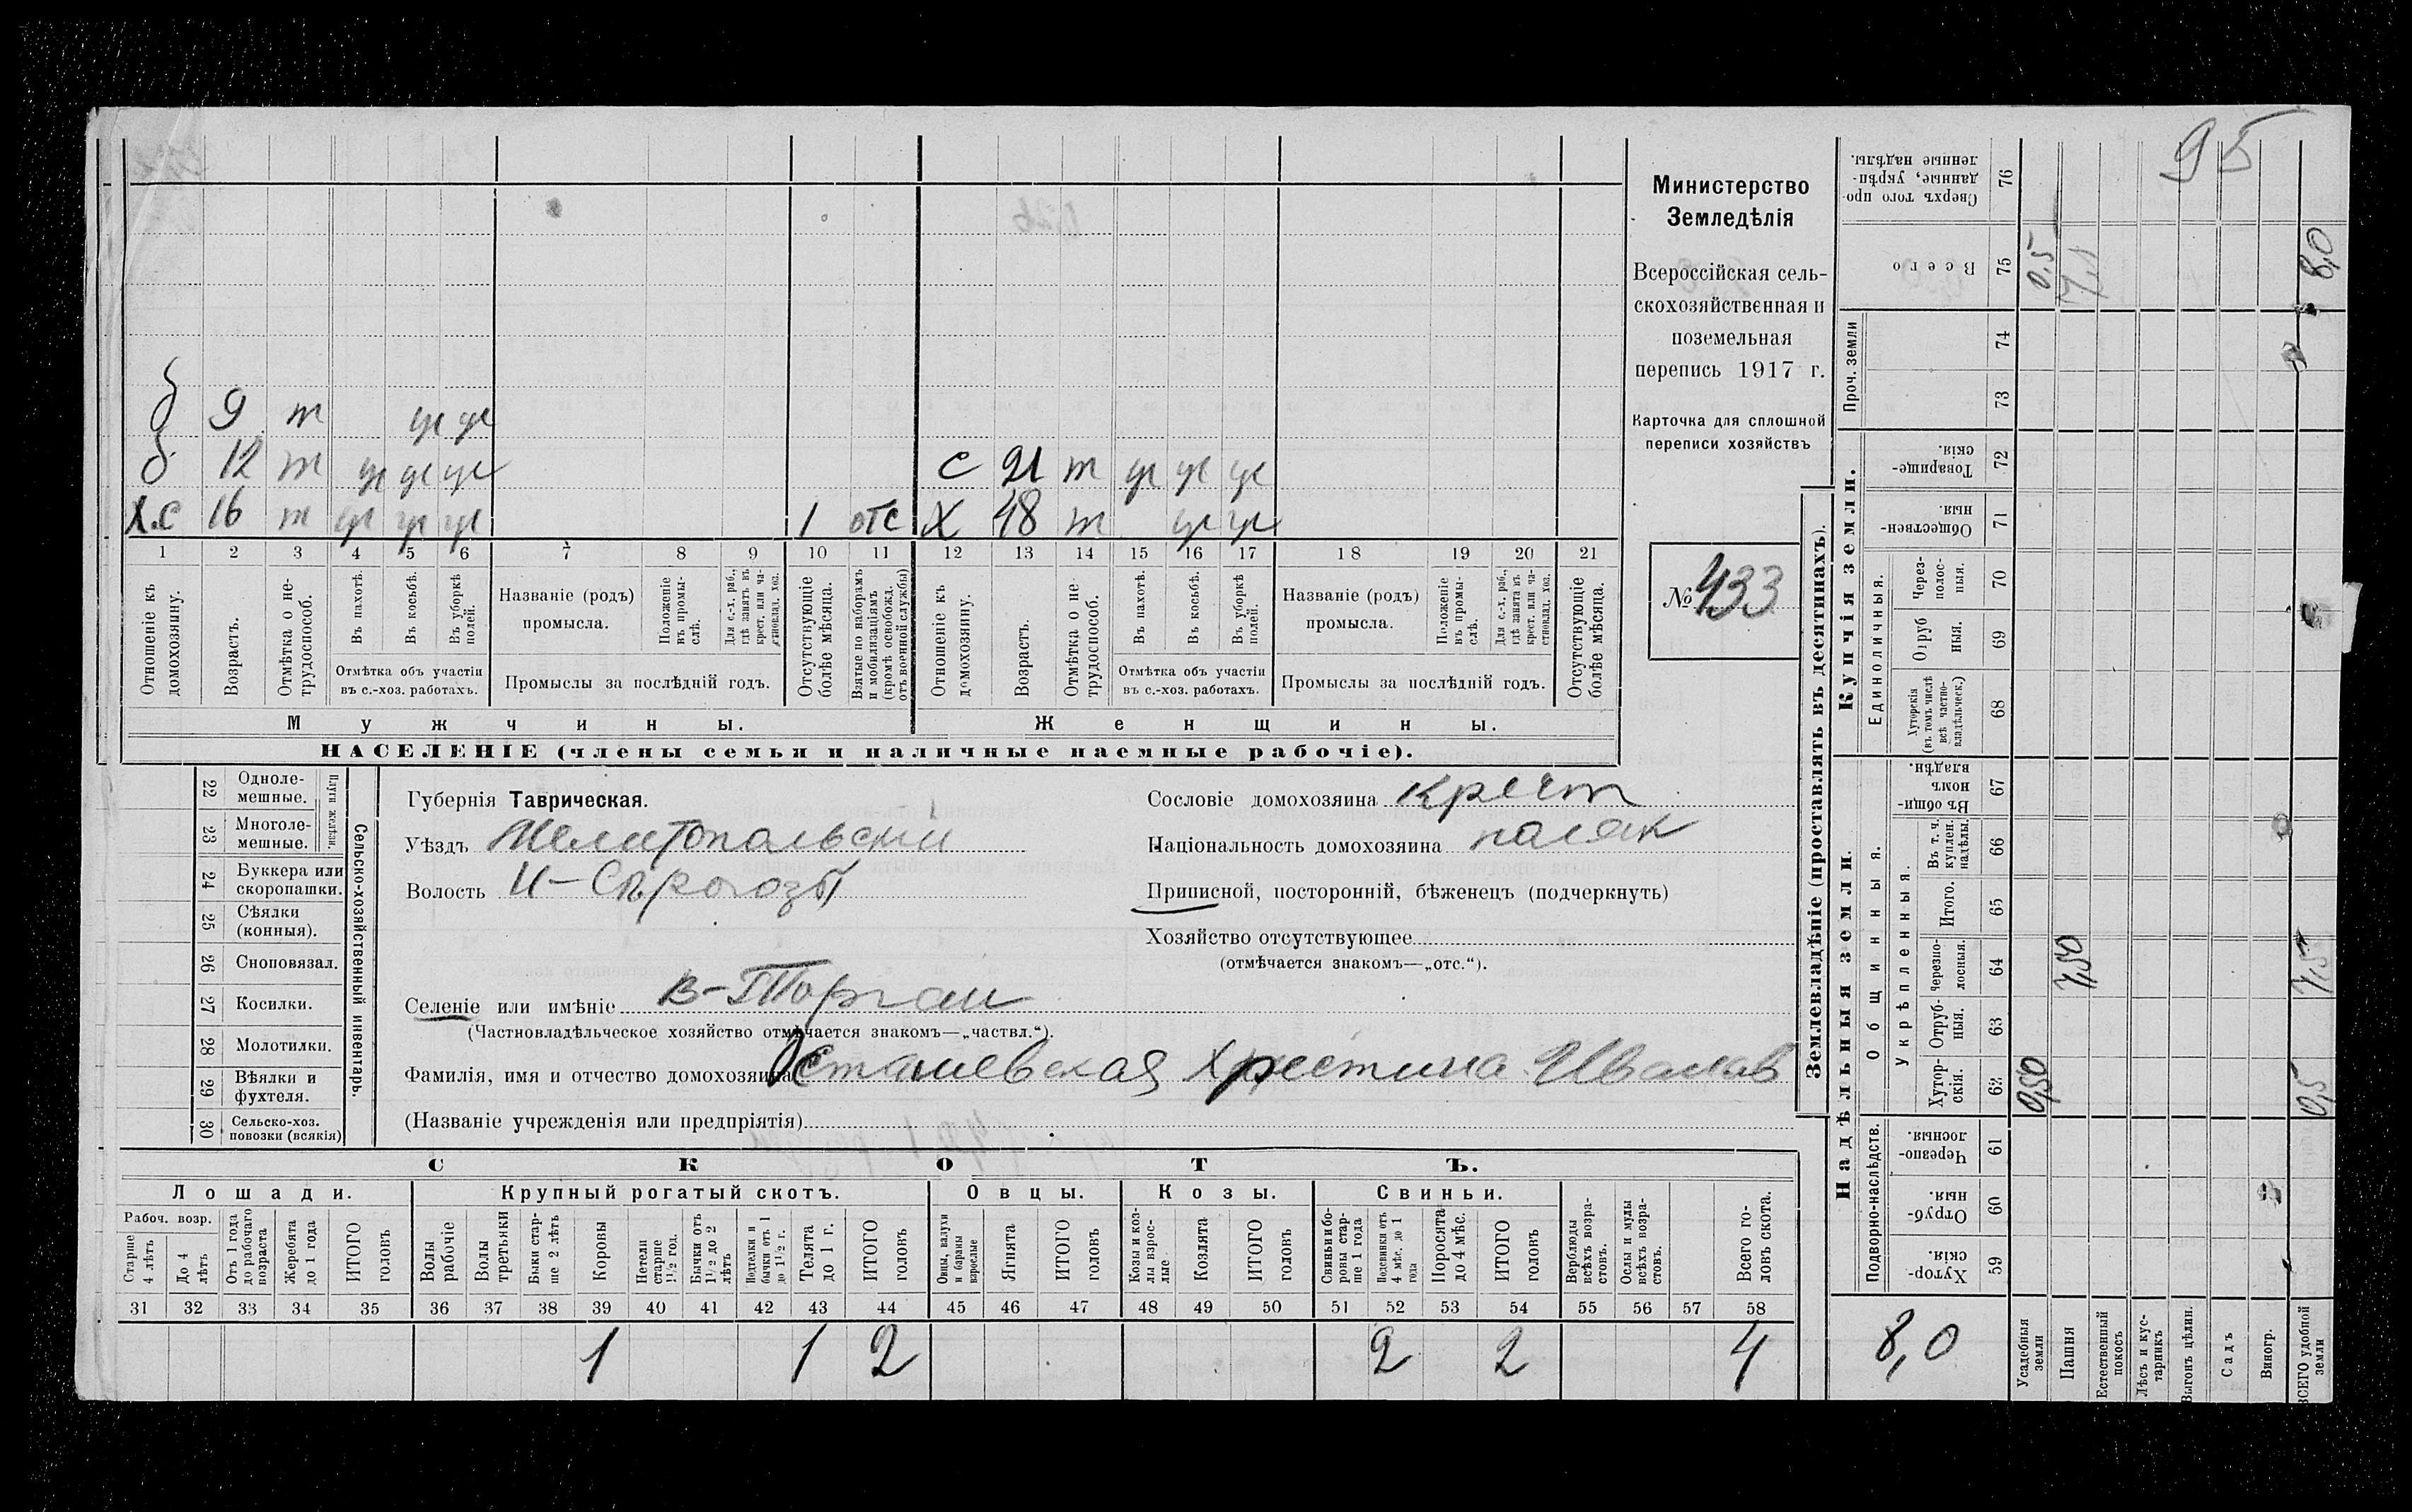 95
б 9 т ул ул
б 12 т ул ул ул
Х.С 16 т ул ул ул 1 отс
с 21 т ул ул ул
Х 48 т ул ул
1 2 3 4 5 6 7 8 9 10 11 12 13 14 15 16 17 18 19 20 21
Отношеніе къ домохозяину.
Возрастъ.
Отмѣтка о нетрудоспособ.
Въ пахотѣ.
Въ косьбѣ.
Въ уборкѣ полей.
Отмѣтка объ участіи
въ с.-хоз. работахъ.
Названіе (родъ)
промысла.
Положеніе въ промыслѣ.
Для с.-х. раб., гдѣ занятъ въ крест. или частновлад. хоз.
Промыслы за послѣдній годъ.
Отсутствующіе болѣе мѣсяца.
Взятые по наборамъ и мобилизаціямъ (кромѣ освобожд. отъ военной службы)
Отношеніе къ домохозяину.
Возрастъ.
Отмѣтка о нетрудоспособ.
Въ пахотѣ.
Въ косьбѣ.
Въ уборкѣ полей.
Отмѣтка объ участіи
въ с.-хоз. работахъ.
Названіе (родъ)
промысла.
Положеніе въ промыслѣ.
Для с.-х. раб., гдѣ занята въ крест. или частновлад. хоз.
Промыслы за послѣдній годъ.
Отсутствующіе болѣе мѣсяца.
Мужчины.
Женщины.
НАСЕЛЕНІЕ (члены семьи и наличные наемные рабочіе).
Министерство
Земледѣлія
Всероссійская сель-
скохозяйственная и
поземельная
перепись 1917 г.
Карточка для сплошной
переписи хозяйствъ
№ 433
22 Однолемешные.
23 Многолемешные.
Плуги желѣзн.
24 Буккера или скоропашки.
25 Сѣялки (конныя).
26 Сноповязал.
27 Косилки.
28 Молотилки.
29 Вѣялки и фухтеля.
30 Сельско-хоз. повозки (всякія)
Сельско-хозяйственный инвентарь.
Губернія Таврическая.
Уѣздъ Мелитопольскій
Волость И-Сѣрогозы
Селеніе или имѣніе В-Торгаи
(Частновладѣльческое хозяйство отмѣчается знакомъ—„частвл.“).
Фамилія, имя и отчество домохозяина Осташевская Христина Иванов
(Названіе учрежденія или предпріятія)
Сословіе домохозяина крест
Національность домохозяина поляк
Приписной, посторонній, бѣженецъ (подчеркнуть)
Хозяйство отсутствующее
(отмѣчается знакомъ—„отс.“).
СКОТЪ.
Лошади.
Крупный рогатый скотъ.
Овцы.
Козы.
Свиньи.
Рабоч. возр.
Старше 4 лѣтъ
До 4 лѣтъ
Отъ 1 года до рабочаго возраста
Жеребята до 1 года
ИТОГО головъ
Волы рабочіе
Волы третьяки
Быки старше 2 лѣтъ
Коровы
Нетели старше 1½ год.
Бычки отъ 1½ до 2 лѣтъ
Подтелки и бычки отъ 1 до 1½ г.
Телята до 1 г.
ИТОГО головъ
Овцы, валухи и бараны взрослые
Ягнята
ИТОГО головъ
Козы и козлы взрослые
Козлята
ИТОГО головъ
Свиньи и боровы старше 1 года
Подсвинки отъ 4 мѣс. до 1 года
Поросята до 4 мѣс.
ИТОГО головъ
Верблюды всѣхъ возрастовъ.
Ослы и мулы всѣхъ возрастовъ.
Всего головъ скота.
31 32 33 34 35 36 37 38 39 40 41 42 43 44 45 46 47 48 49 50 51 52 53 54 55 56 57 58
1 1 2 2 2 4
Землевладѣніе (проставлять въ десятинахъ).
Надѣльныя земли.
Купчія земли.
Проч. земли
Подворно-наслѣдств.
Общинныя.
Укрѣпленныя.
Единоличныя.
Сверхъ того проданные, укрѣпленные надѣлы. 76
Всего 75 0,5 7,1 8,0
74
73
Товарищескія. 72
Общественныя. 71
Черезполосныя. 70
Отрубныя. 69
Хуторскія (въ томъ числѣ всѣ частновладѣльческ.) 68
Въ общинномъ владѣн. 67
Въ т. ч. куплен. надѣлы. 66
Итого. 65
Черезполосныя. 64 7,50 7,5
Отрубныя. 63
Хуторскія. 62 0,50 0,5
Черезполосныя. 61
Отрубныя. 60
Хуторскія. 59
8,0
Усадебныя земли
Пашня
Естественный покосъ
Лѣсъ и кустарникъ
Выгонъ цѣлин.
Садъ
Виногр.
ВСЕГО удобной земли